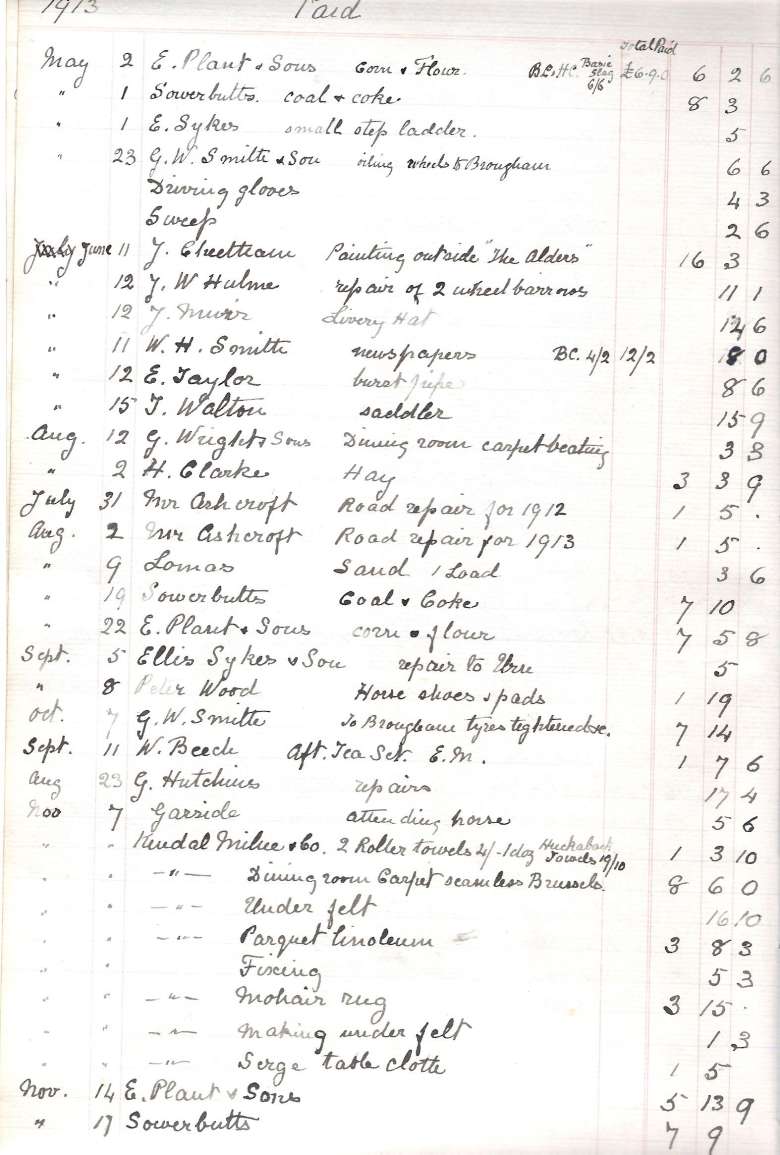 1913 Paid
May 2 E. Plant & Sons Corn & Flour. B.C. H.C. Basic Slag 6/6 Total Paid £6.9.0 6 2 6
" 1 Sowerbutts. coal & coke 8 3
" 1 E. Sykes small step ladder. 5
" 23 G. W. Smith & Son oiling wheels to Brougham 6 6
Driving gloves 4 3
Sweep 2 6
June 11 J. Cheetham Painting outside "The Alders" 16 3
" 12 J. W Hulme repair of 2 wheel barrows 11 1
" 12 J. Muir Livery Hat 12 6
" 11 W. H. Smith newspapers BC. 4/2 12/2 8 0
" 12 E. Taylor burst pipe 8 6
" 15 T. Walton saddler 15 9
Aug. 12 G. Wright & Sons Dining room carpet beating 3 3
" 2 H. Clarke Hay 3 3 9
July 31 Mr Ashcroft Road repair for 1912 1 5 .
Aug. 2 Mr Ashcroft Road repair for 1913 1 5 .
" 9 Lomas Sand 1 Load 3 6
" 19 Sowerbutts Coal & Coke 7 10
" 22 E. Plant & Sons corn & flour 7 5 8
Sept. 5 Ellis Sykes & Son repair to Urn 5
" 8 Peter Wood Horse shoes & pads 1 19
Oct. 7 G. W. Smith To Brougham tyres tightened &c. 7 14
Sept. 11 W. Beech Aft. Tea Set. E. M. 1 7 6
Aug 23 G. Hutchins repairs 17 4
Nov 7 Garside attending horse 5 6
" " Kendal Milne & Co. 2 Roller towels 4/- 1 doz Huckaback Towels 19/10 1 3 10
" " —"— Dining room Carpet seamless Brussels. 8 6 0
" " —"— Under felt 16 10
" " —"— Parquet linoleum 3 8 3
" " Fixing 5 3
" " —"— Mohair rug 3 15 .
" " —"— Making under felt 1 3
" " —"— Serge table cloth 1 5
Nov. 14 E. Plant & Sons 5 13 9
" 17 Sowerbutts 7 9